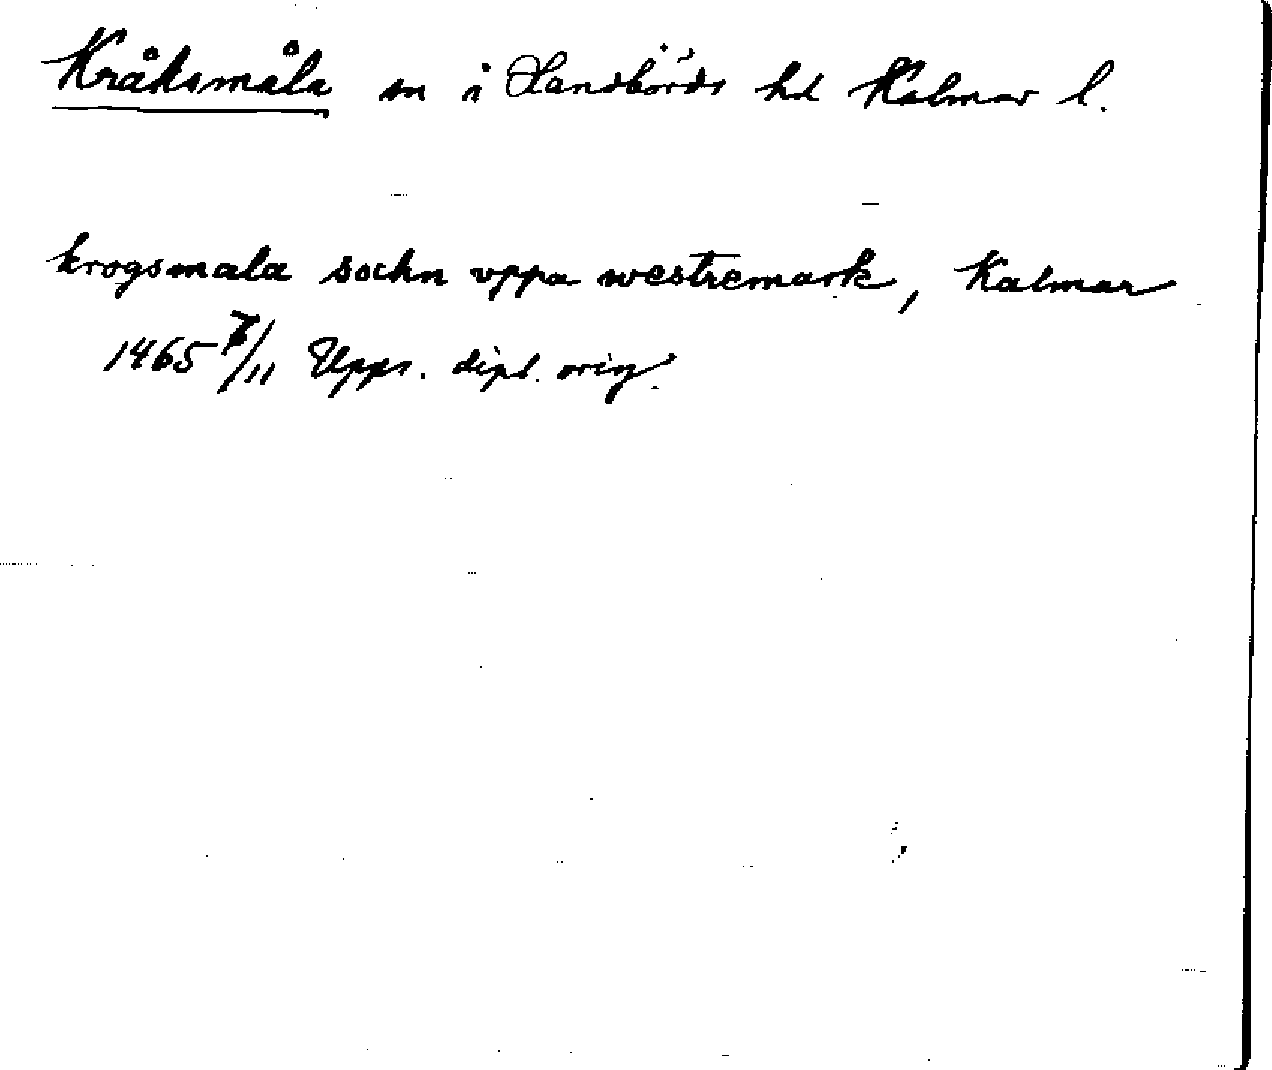 Kråksmåla sn i Handbörds hd Kalmar l.
krogsmala sochn vppa westremark, Kalmar
1465 7/11 Upps. dipl. orig.